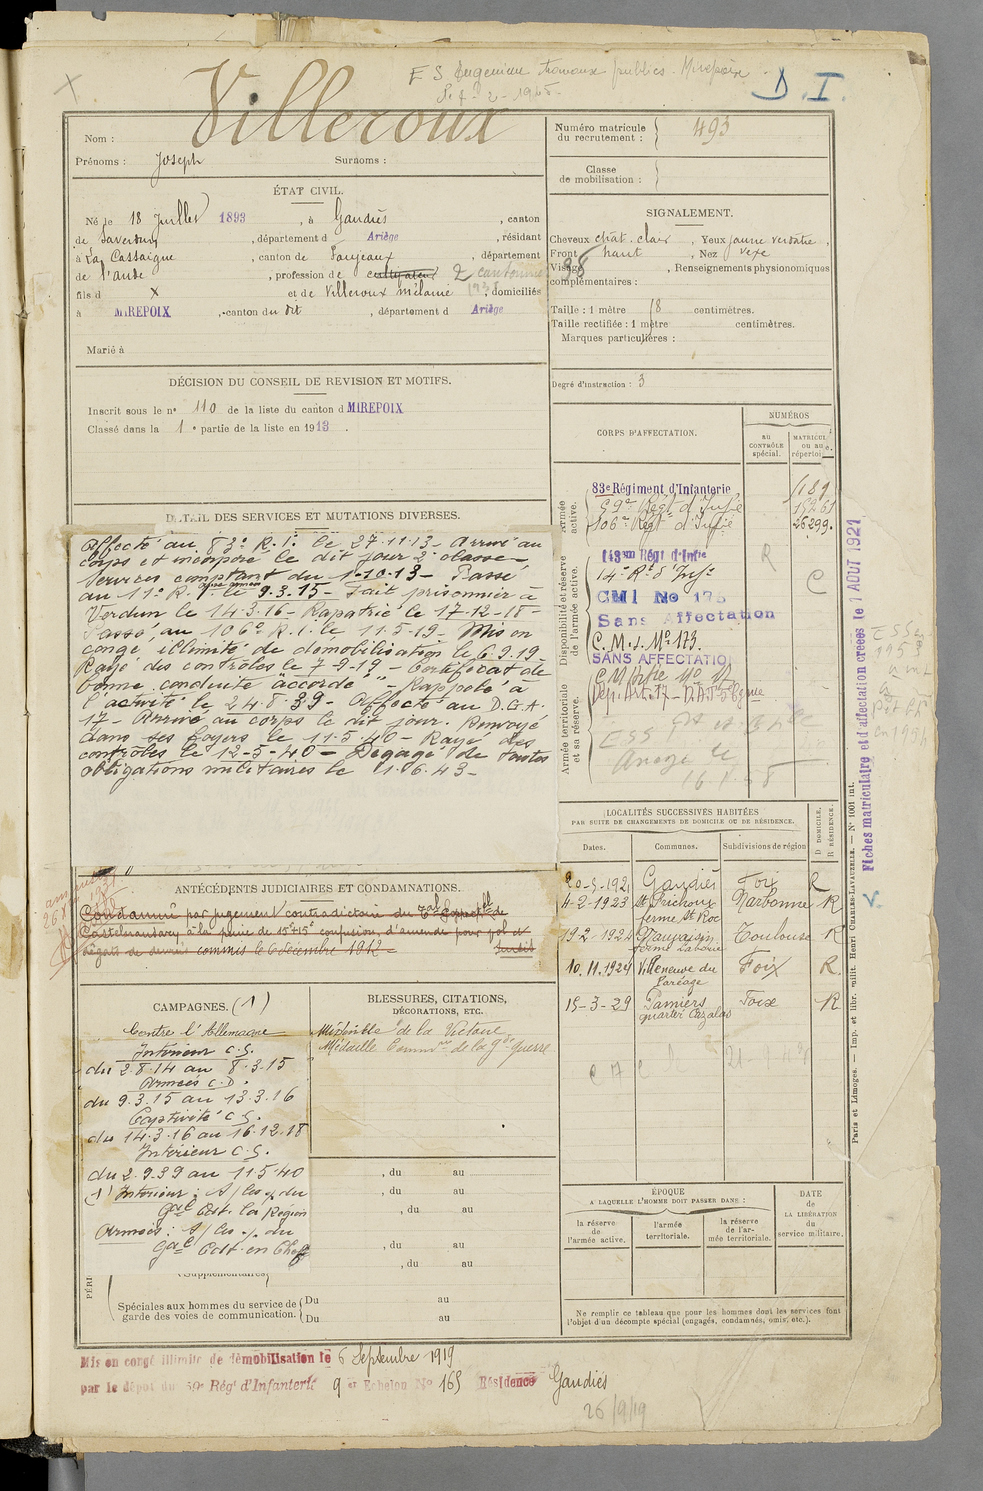 E S Ingénieur travaux publics Mirepoix
D. I.
Nom : Villeroux
Prénoms : Joseph Surnoms :
Numéro matricule du recrutement : 493
Classe de mobilisation :
ÉTAT CIVIL.
Né le 18 Juillet 1893, à Gaudiès, canton
de Saverdun, département d Ariège, résidant
à La Cassaigne, canton de Fanjeaux, département
de l'Aude, profession de cultivateur cantonnier
1938
fils d x et de Villeroux Mélanie, domiciliés
à MIREPOIX, canton du dit, département d Ariège
Marié à
SIGNALEMENT.
Cheveux chât. clair, Yeux jaune verdâtre,
Front haut, Nez vexe
Visage, Renseignements physionomiques
complémentaires :
Taille : 1 mètre 68 centimètres.
Taille rectifiée : 1 mètre centimètres.
Marques particulières :
Degré d'instruction : 3
DÉCISION DU CONSEIL DE REVISION ET MOTIFS.
Inscrit sous le n° 110 de la liste du canton d MIREPOIX
Classé dans la 1e partie de la liste en 1913.
CORPS D'AFFECTATION.
NUMÉROS
au CONTRÔLE spécial.
MATRICULE ou au répertoire.
Armée active.
83e Régiment d'Infanterie
59e Régt d'Infie
106e Régt d'Infie 26299.
Disponibilité et réserve de l'armée active.
143me Régt d'Infie
14e Rt d'Infie
CMI No 173
Sans Affectation
C.M.I. No 173.
SANS AFFECTATION
Armée territoriale et sa réserve.
Dép. Art. 17 - D.A.T. 5e Cgnie
16.1.58
Fiches matriculaire et d'affectation créées le 1 AOUT 1921
DÉTAIL DES SERVICES ET MUTATIONS DIVERSES.
Affecté au 83e R.I. le 27.11.13 - Arrivé au
corps et incorporé le dit jour 2e classe -
Services comptant du 1-10-13 - Passé
au 11e R.I. le 9.3.15 - Fait prisonnier à
Verdun le 14.3.16 - Rapatrié le 17-12-18 -
Passé au 106e R.I. le 11-5-19 - Mis en
congé illimité de démobilisation le 6.9.19
Rayé des contrôles le 7-9-19 - Certificat de
bonne conduite "accordé" - Rappelé à
l'activité le 24.8.39 - Affecté au D.G.A.
17 - Arrivé au corps le dit jour. Renvoyé
dans ses foyers le 11-5-40 - Rayé des
contrôles le 12-5-40 - Dégagé de toutes
obligations militaires le 11.6.43 -
ANTÉCÉDENTS JUDICIAIRES ET CONDAMNATIONS.
Condamné par jugement contradictoire du Tal Correctel de
Castelnaudary à la peine de 15f + 15f confusion, d'amende pour vol et
commis le 6 décembre 1912
LOCALITÉS SUCCESSIVES HABITÉES
PAR SUITE DE CHANGEMENTS DE DOMICILE OU DE RÉSIDENCE.
Dates. Communes. Subdivisions de région D DOMICILE. R RÉSIDENCE.
20-5-1921 Gaudiès Foix R
4-2-1923 ferme St Roc Narbonne R
19-2-1924 Toulouse R
10.11.1924 Villeneuve du Paréage Foix R.
15-3-29 Pamiers quartier Cazalas Foix R
CAMPAGNES. (1)
Contre l'Allemagne
Intérieur C.S.
du 2.8.14 au 8.3.15
Armées C.D.
du 9.3.15 au 13.3.16
Captivité C.S.
du 14.3.16 au 16.12.18
Intérieur C.S.
du 2.9.39 au 11.5.40
(1) Intérieur : du
Gal Cdt la Région
Armées : du
Gal Cdt en Chef
BLESSURES, CITATIONS,
DÉCORATIONS, ETC.
Médaille de la Victoire
Médaille Commve de la Gde guerre
, du au
, du au
, du au
, du au
, du au
PÉRI
(Supplémentaires)
Spéciales aux hommes du service de garde des voies de communication. Du au
Du au
ÉPOQUE
A LAQUELLE L'HOMME DOIT PASSER DANS :
la réserve de l'armée active.
l'armée territoriale.
la réserve de l'armée territoriale.
DATE de LA LIBÉRATION du service militaire.
Ne remplir ce tableau que pour les hommes dont les services font
l'objet d'un décompte spécial (engagés, condamnés, omis, etc.).
Paris et Limoges. — Imp. et libr. milit. Henri CHARLES-LAVAUZELLE. — N° 1001 int.
Mis en congé illimité de démobilisation le 6 Septembre 1919
par le dépôt du 59e Régt d'Infanterie 9e Echelon No 165 Résidence Gaudiès
26/9/19